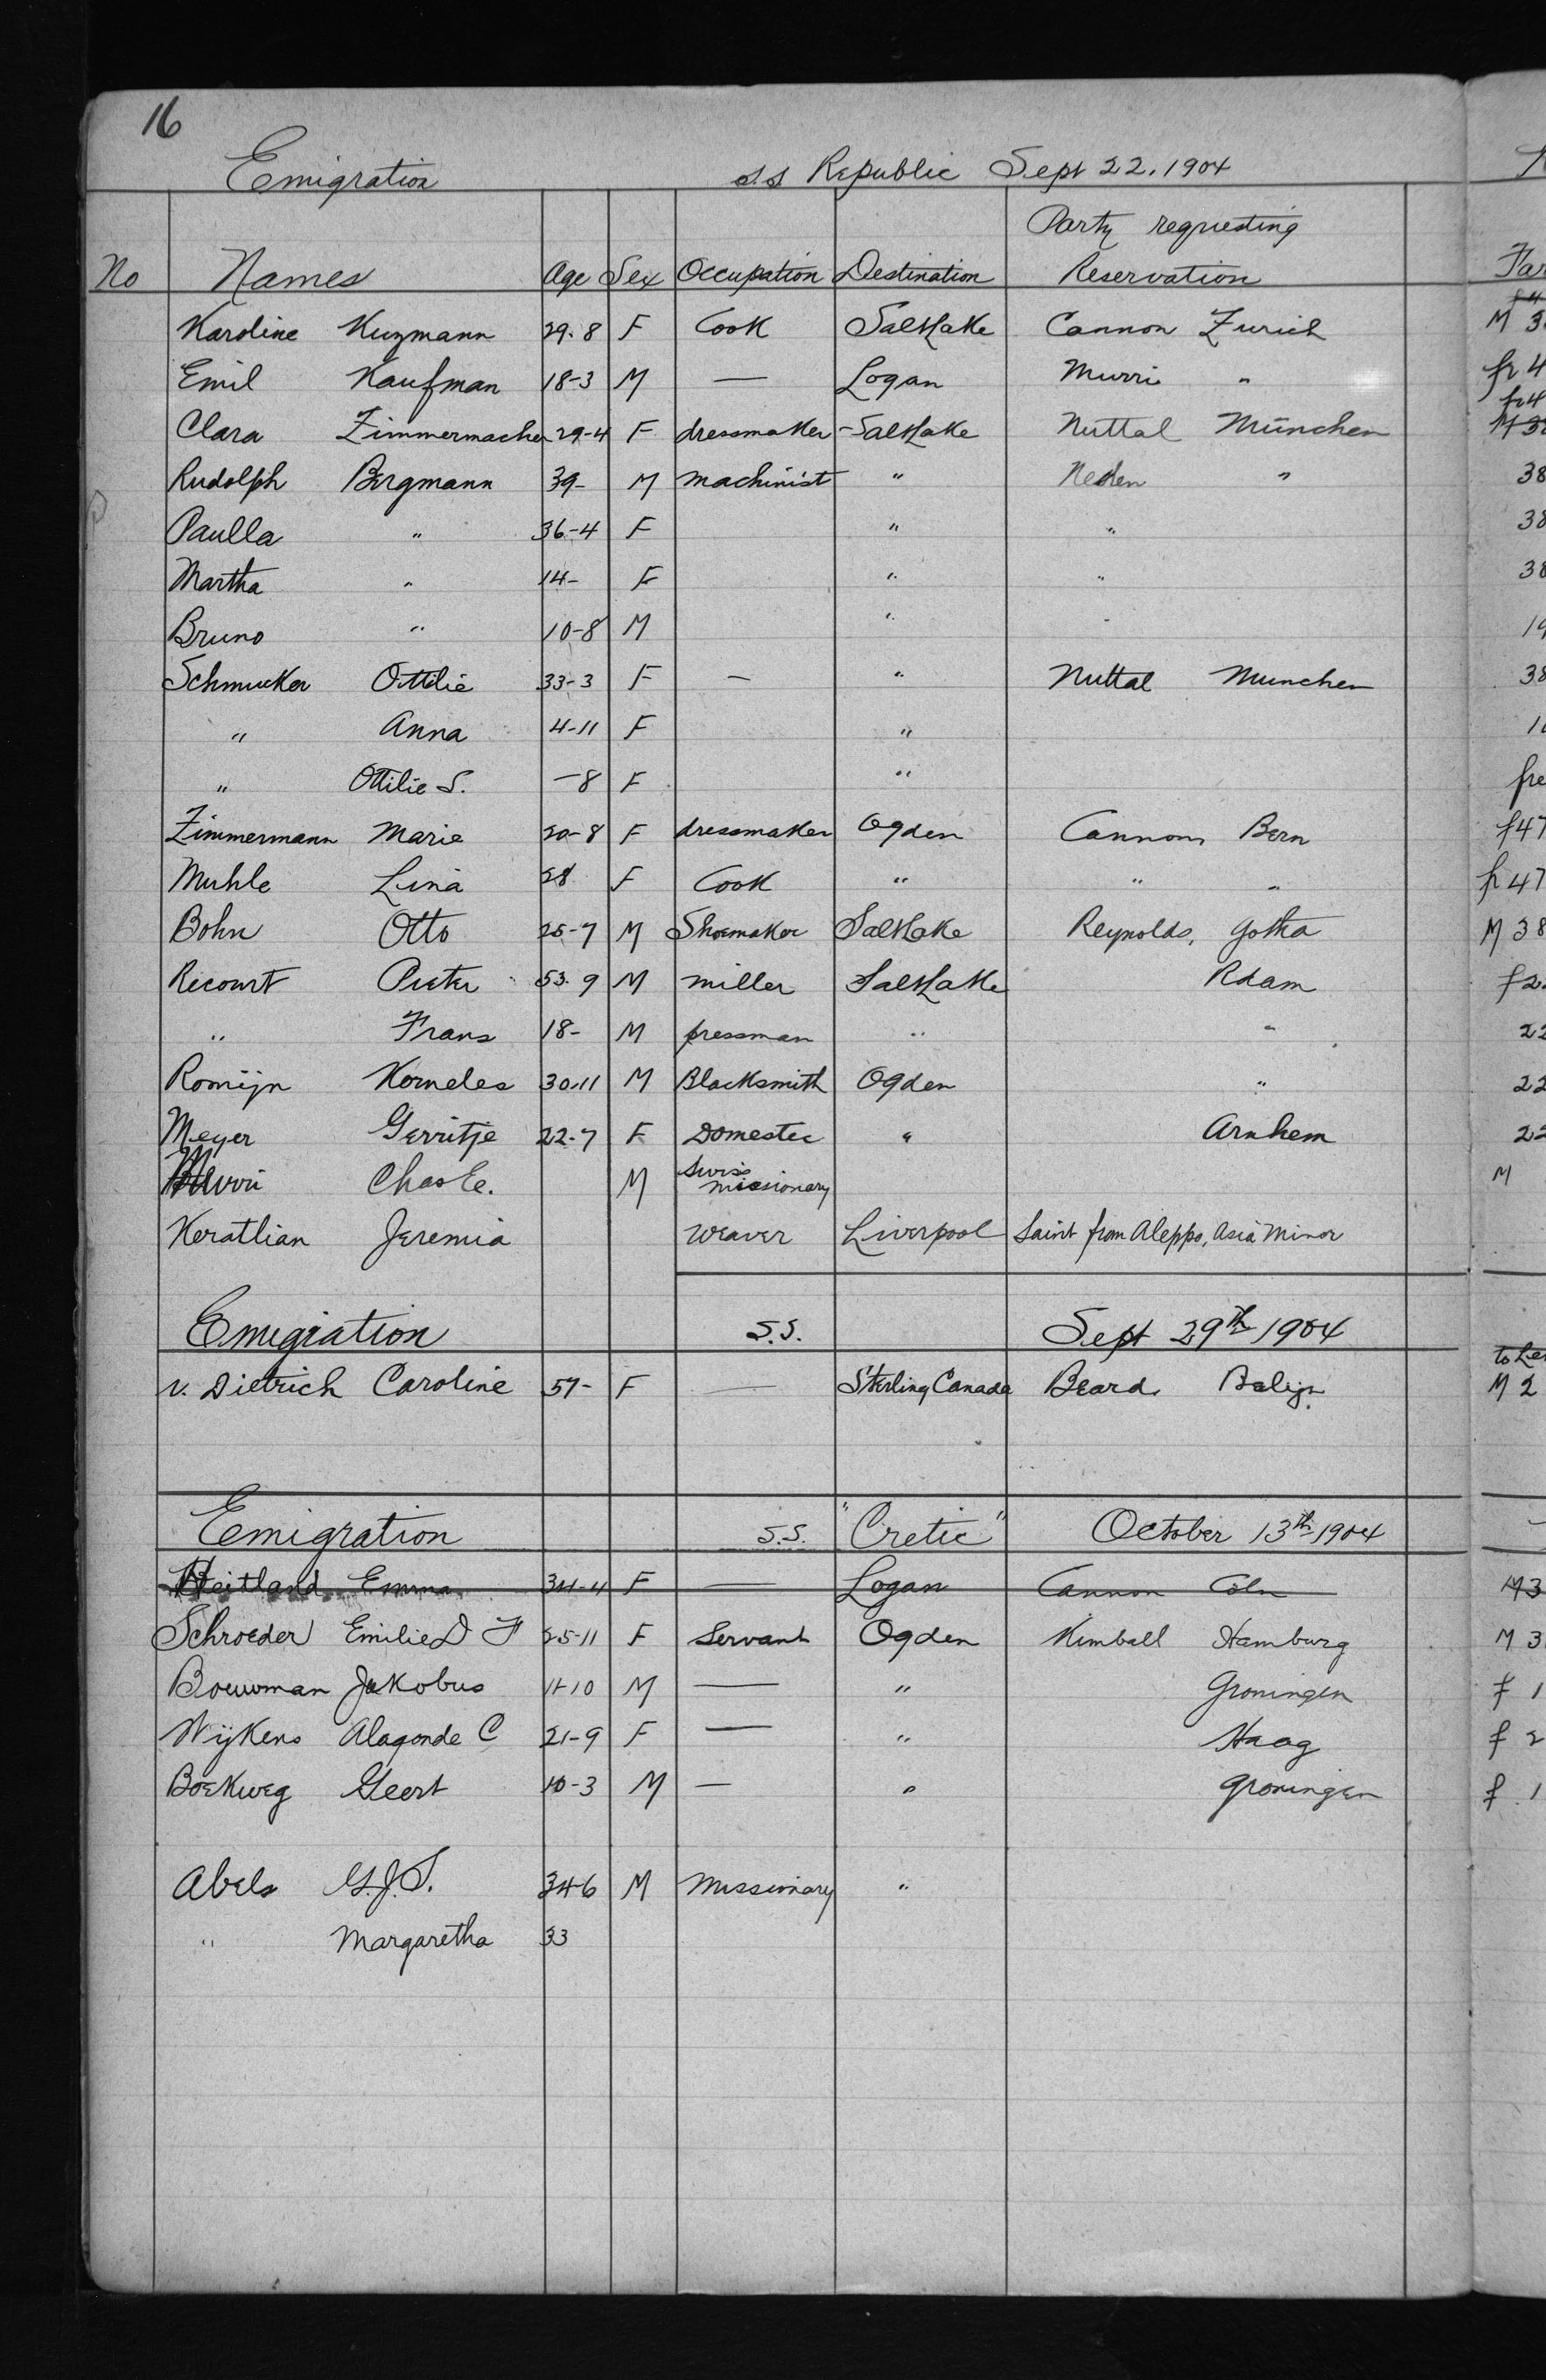 16
Emigration S.S Republic Sept 22. 1904
Party requesting
No Names Age Sex Occupation Destination Reservation
Karoline Kuzmann 29.8 F Cook Salt Lake Cannon Zurich
Emil Kaufman 18-3 M — Logan Murri "
Clara Zimmermacher 29-4 F dressmaker Salt Lake Nuttal München
Rudolph Bergmann 39- M machinist " "
Paulla " 36-4 F " "
Martha " 14- F " "
Bruno " 10-8 M " "
Schmucker Ottilie 33-3 F — " Nuttal Munchen
" Anna 4-11 F "
" Ottilie S. -8 F "
Zimmermann Marie 20-8 F dressmaker Ogden Cannon, Bern
Muhle Lina 28 F Cook " " "
Bohn Otto 25-7 M Shoemaker Salt Lake Reynolds, Gotha
Recourt Pieter 53.9 M miller Salt Lake Rdam
" Frans 18- M pressman " "
Romijn Korneles 30.11 M Blacksmith Ogden "
Meyer Gerritje 22-7 F Domestec " Arnhem
Murri Chas E. M Swiss missionary
Keratlian Jeremia Weaver Liverpool Saint from Aleppo, Asia Minor
Emigration S.S. Sept 29th 1904
v. Dietrich Caroline 57- F — Sterling Canada Beard.
Emigration S.S. "Cretic" October 13th 1904
Heitland Emma 34-4 F — Logan Cannon Coln
Schroeder Emilie D F 25-11 F Servant Ogden Kimball Hamburg
Bouwman Jakobus 11-10 M — " Groningen
Wijkens Alagonde C 21-9 F — " Haag
Boekweg Geert 10-3 M — " Groningen
Abels G.J.S. 34-6 M Missionary "
" Margaretha 33